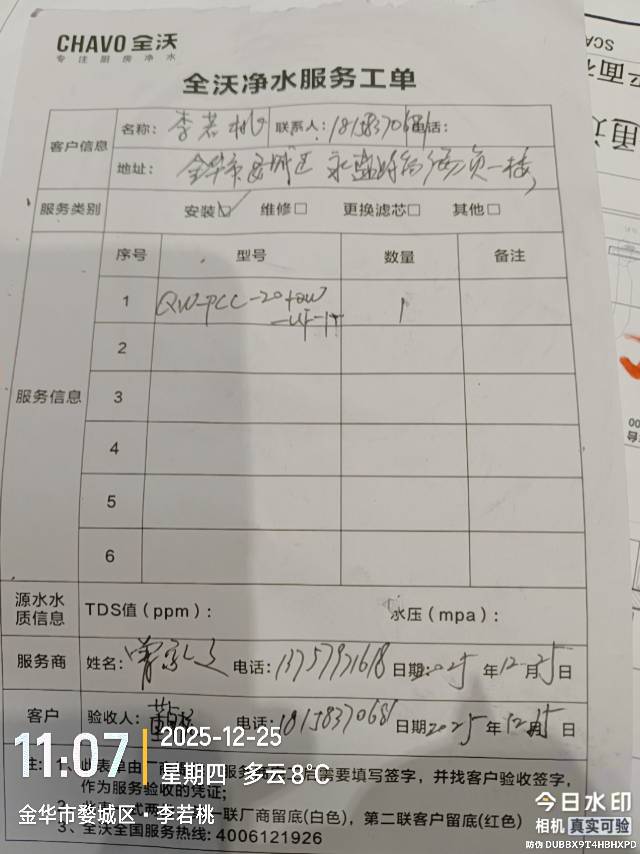 CHAVO 全沃
专注厨房净水
全沃净水服务工单
客户信息 名称: 李若桃 联系人: 18158370681 电话:
地址: 金华市婺城区 一楼
服务类别 安装☑ 维修□ 更换滤芯□ 其他□
服务信息 序号 型号 数量 备注
1 QW-PCC-20 1
2
3
4
5
6
源水水质信息 TDS值(ppm): 水压(mpa):
服务商 姓名: 电话: 13757931618 日期: 2025年12月25日
客户 验收人: 电话: 18158370681 日期 2025年12月25日
注: 1、此表单由厂商 服务 需要填写签字，并找客户验收签字，
作为服务验收的凭证;
2、 一联厂商留底(白色)，第二联客户留底(红色)
3、全沃全国服务热线: 4006121926
11:07 2025-12-25
星期四 多云 8℃
金华市婺城区·李若桃
今日水印
相机 真实可验
防伪 DUBBX9T4HBHXPD